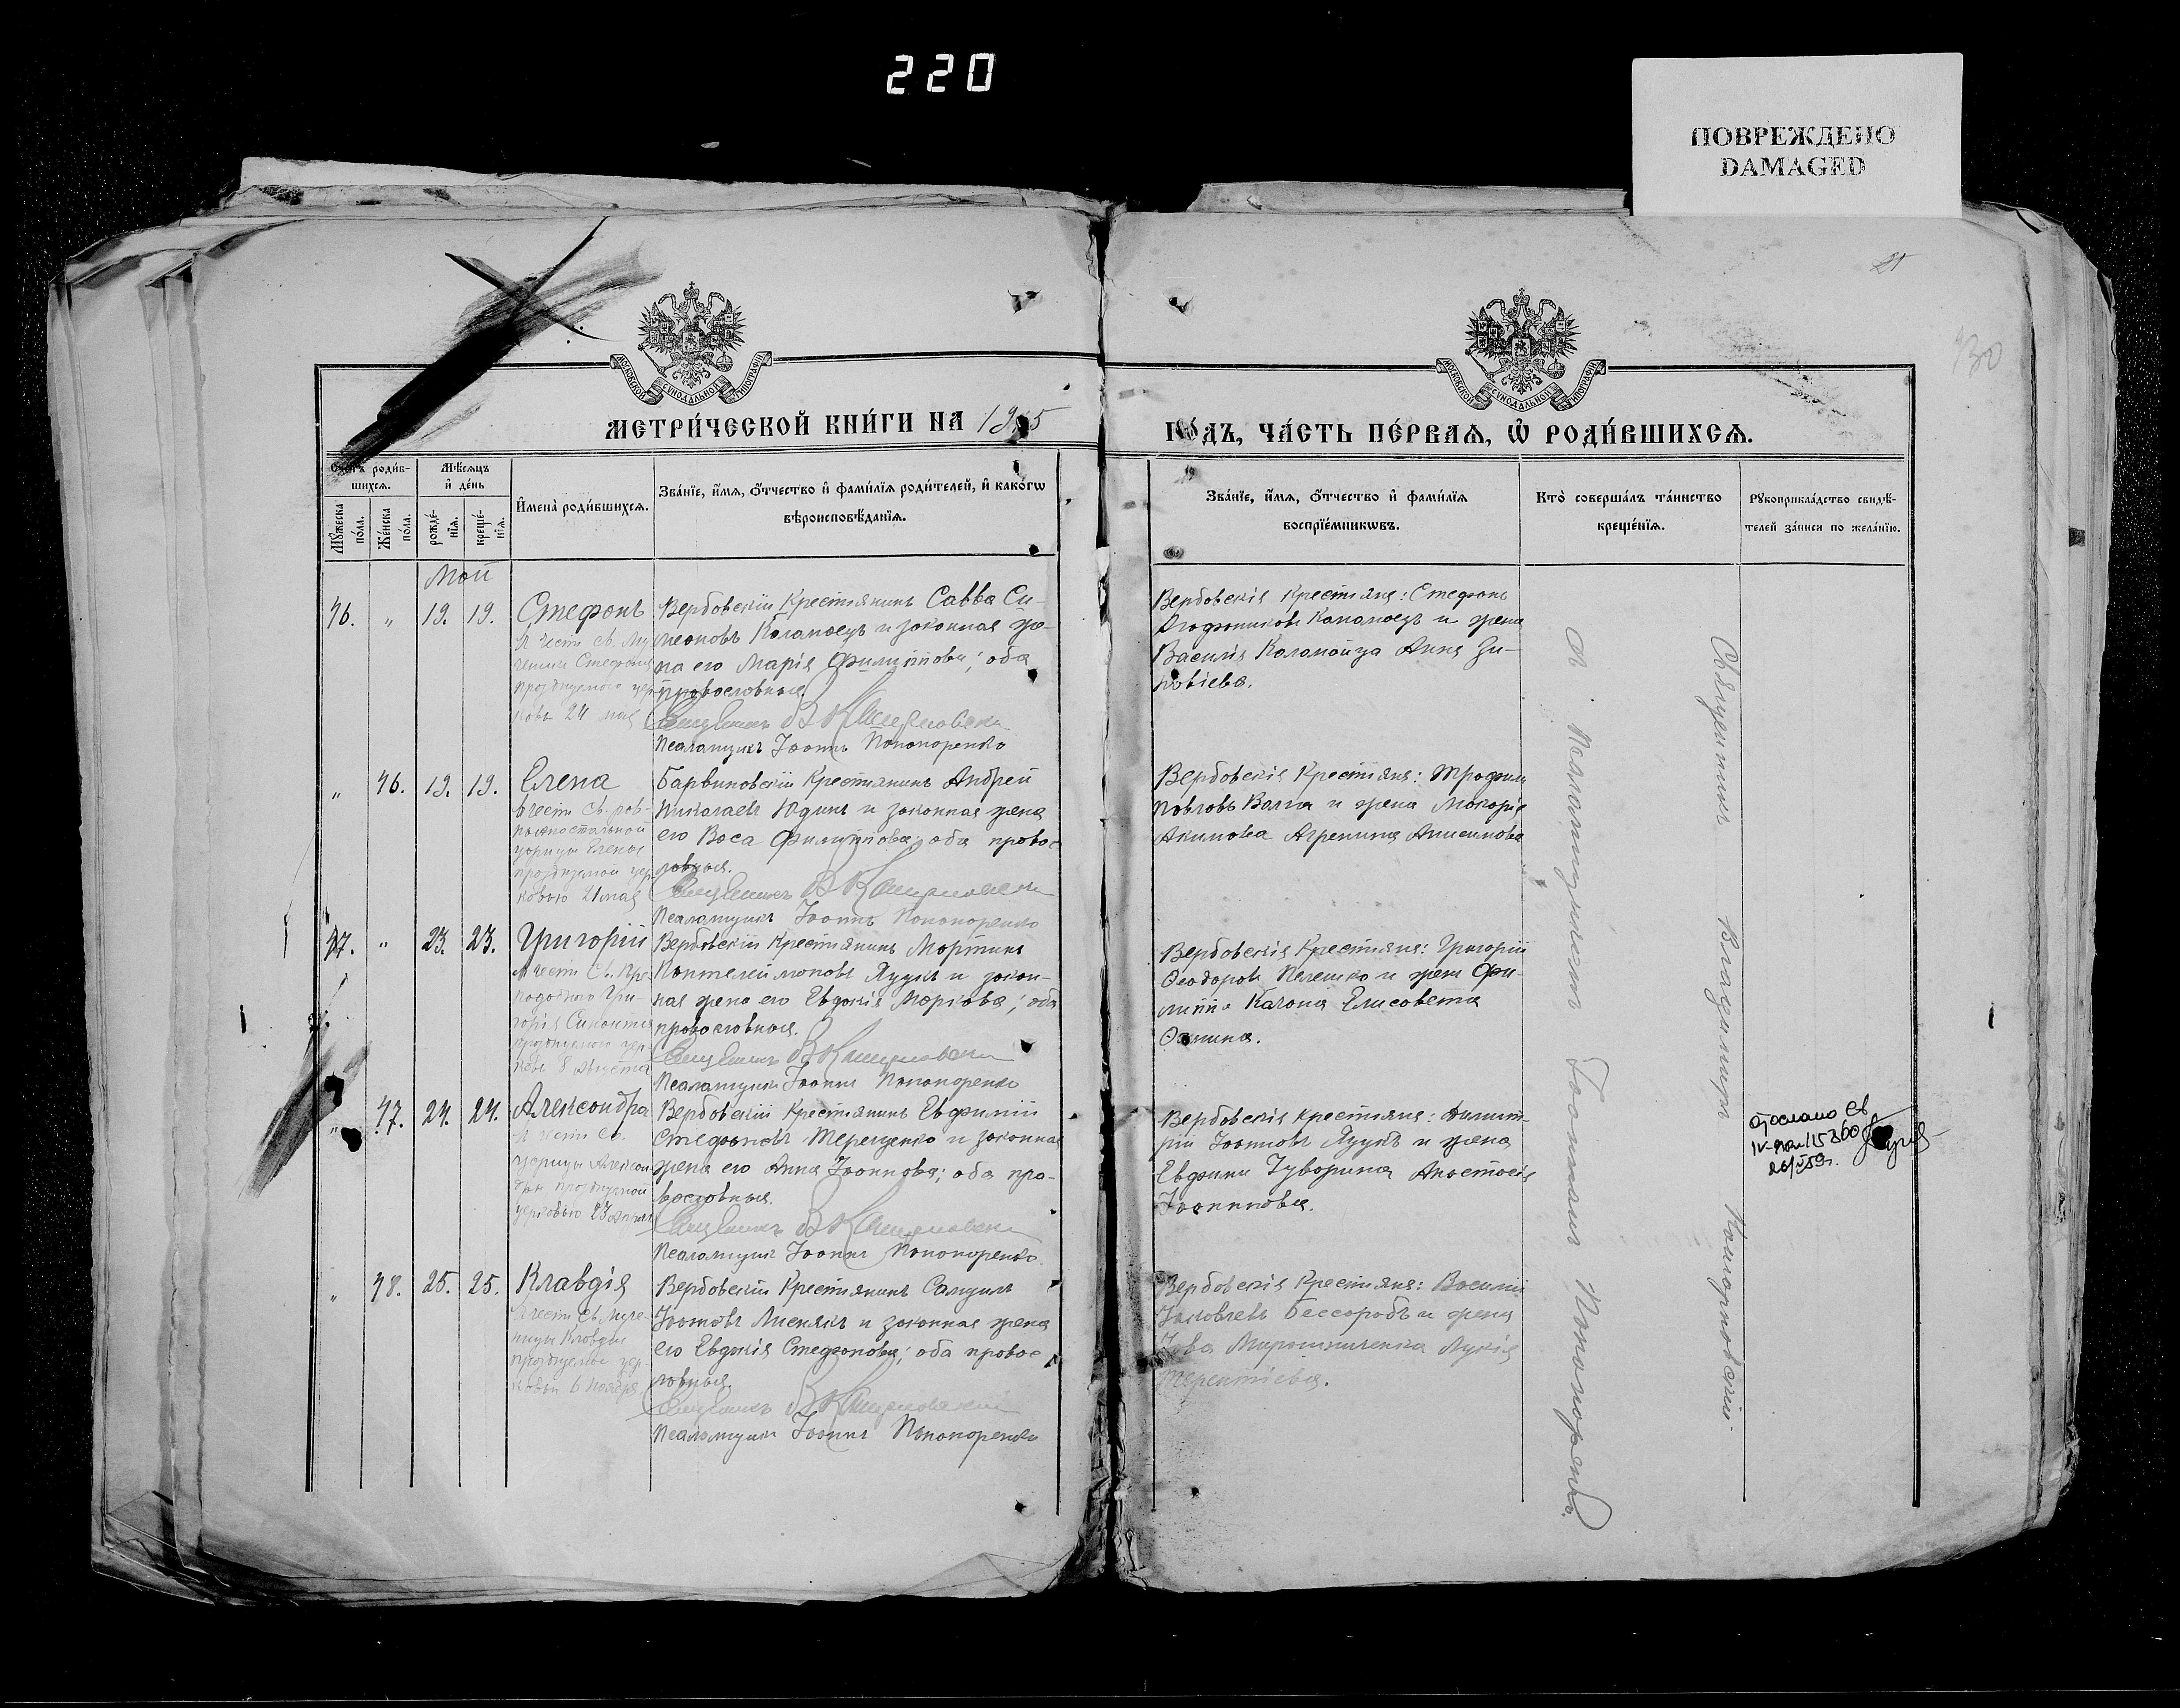 220
ПОВРЕЖДЕНО
DAMAGED
30
МОСКОВСКОЙ СѴНОДАЛЬНОЙ ТИПОГРАФІИ
МОСКОВСКОЙ СѴНОДАЛЬНОЙ ТИПОГРАФІИ
МЕТРИ́ЧЕСКОЙ КНИ́ГИ НА 19 5
ГО́ДЪ, ЧА́СТЬ ПЕ́РВАѦ, Ѡ҆ РОДИ́ВШИХСѦ.
Сче́тъ роди́в-
шихсѧ.
Мꙋ́жеска по́ла.
Же́нска по́ла.
Мѣ́сѧцъ
и҆ де́нь
рожде́-
нїѧ.
креще́-
нїѧ.
И҆мена̀ роди́вшихсѧ.
Зва́нїе, и҆́мѧ, ѻ҆́тчество и҆ фамиі́лїѧ роди́телей, и҆ како́гѡ
вѣроисповѣ́данїѧ.
Зва́нїе, и҆́мѧ, ѻ҆́тчество и҆ фами́лїѧ
воспрїе́мникѡвъ.
Кто̀ соверша́лъ та́инство
креще́нїѧ.
Рꙋкоприкла́дство свидѣ́-
телей за́писи по жела́нїю.
Май
46. „ 19. 19. Стефанъ
въ честь св. Му
ченика Стефана
празднуемого цер-
ковью 24 мая
Вербовскій Крестьянинъ Савва Си-
меоновъ Коломоецъ и законная же-
на его Марія Филиппова; оба
православные.
Священникъ В Кашерновскій
Псаломщикъ Іоаннъ Пономоренко
Вербовскія Крестьяне: Стефанъ
Агафониковъ Коломоецъ и жена
Василія Коломойца Анна Зи-
новіева.
„ 46. 19. 19. Елена
въ честь св. рав-
ноапостольной
царицы Елены
празднуемой цер-
ковью 21 мая
Барвиновскій Крестьянинъ Андрей
Николаевъ Юдинъ и законная жена
его Васса Филиппова; оба правос
лавные.
Священникъ В Кашерновскій
Псаломщикъ Іоаннъ Пономоренко
Вербовскія Крестьяне: Трофимъ
Павловъ и жена Макарія
Акимова Агрепина Анисимова
47. „ 23. 23. Григорій
въ честь св. Пре
подобного Гри-
горія Синаита
празднуемого цер-
ковью 8 Августа
Вербовскій Крестьянинъ Мартинъ
Пантелеймоновъ Яууцъ и закон-
ная жена его Евдокія Маркова; оба
православные.
Священникъ В Кашерновскій
Псаломщикъ Іоаннъ Пономоренко
Вербовскія Крестьяне: Григорій
Ѳеодоровъ Пелешко и жена Фи-
липпа Елисовета
Ѳомина.
„ 47. 24. 24. Александра
въ честь св.
царицы Алексан-
дры празднуемой
церковью 23 апреля
Вербовскій Крестьянинъ Евфимій
Стефановъ Терещенко и законная
жена его Анна Іоаннова; оба пра-
вославные.
Священникъ В Кашерновскій
Псаломщикъ Іоаннъ Пономоренко
Вербовскія крестьяне: Димит-
рій Іоанновъ и жена
Евдокима Анастасія
Іоаннова.
„ 48. 25. 25. Клавдія
въ честь св. муче-
ницы Клавдіи
празднуемой цер-
ковью 6 Ноября
Вербовскій Крестьянинъ Самуилъ
Іоанновъ Лиснякъ и законная жена
его Евдокія Стефанова; оба правос
лавные.
Священникъ В Кашерновскій
Псаломщикъ Іоаннъ Пономоренко
Вербовскія Крестьяне: Василій
Яковлевъ Бессарабъ и жена
Іова Мирошниченка Лукія
Терентіева.
Священникъ Владимиръ
съ псаломщикомъ Іоанномъ Пономоренко.
Послано св